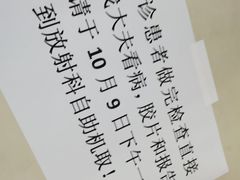 诊患者做完检查直接
大夫看病,胶片和报告
请于10月9日下午一
到放射科自助机取!